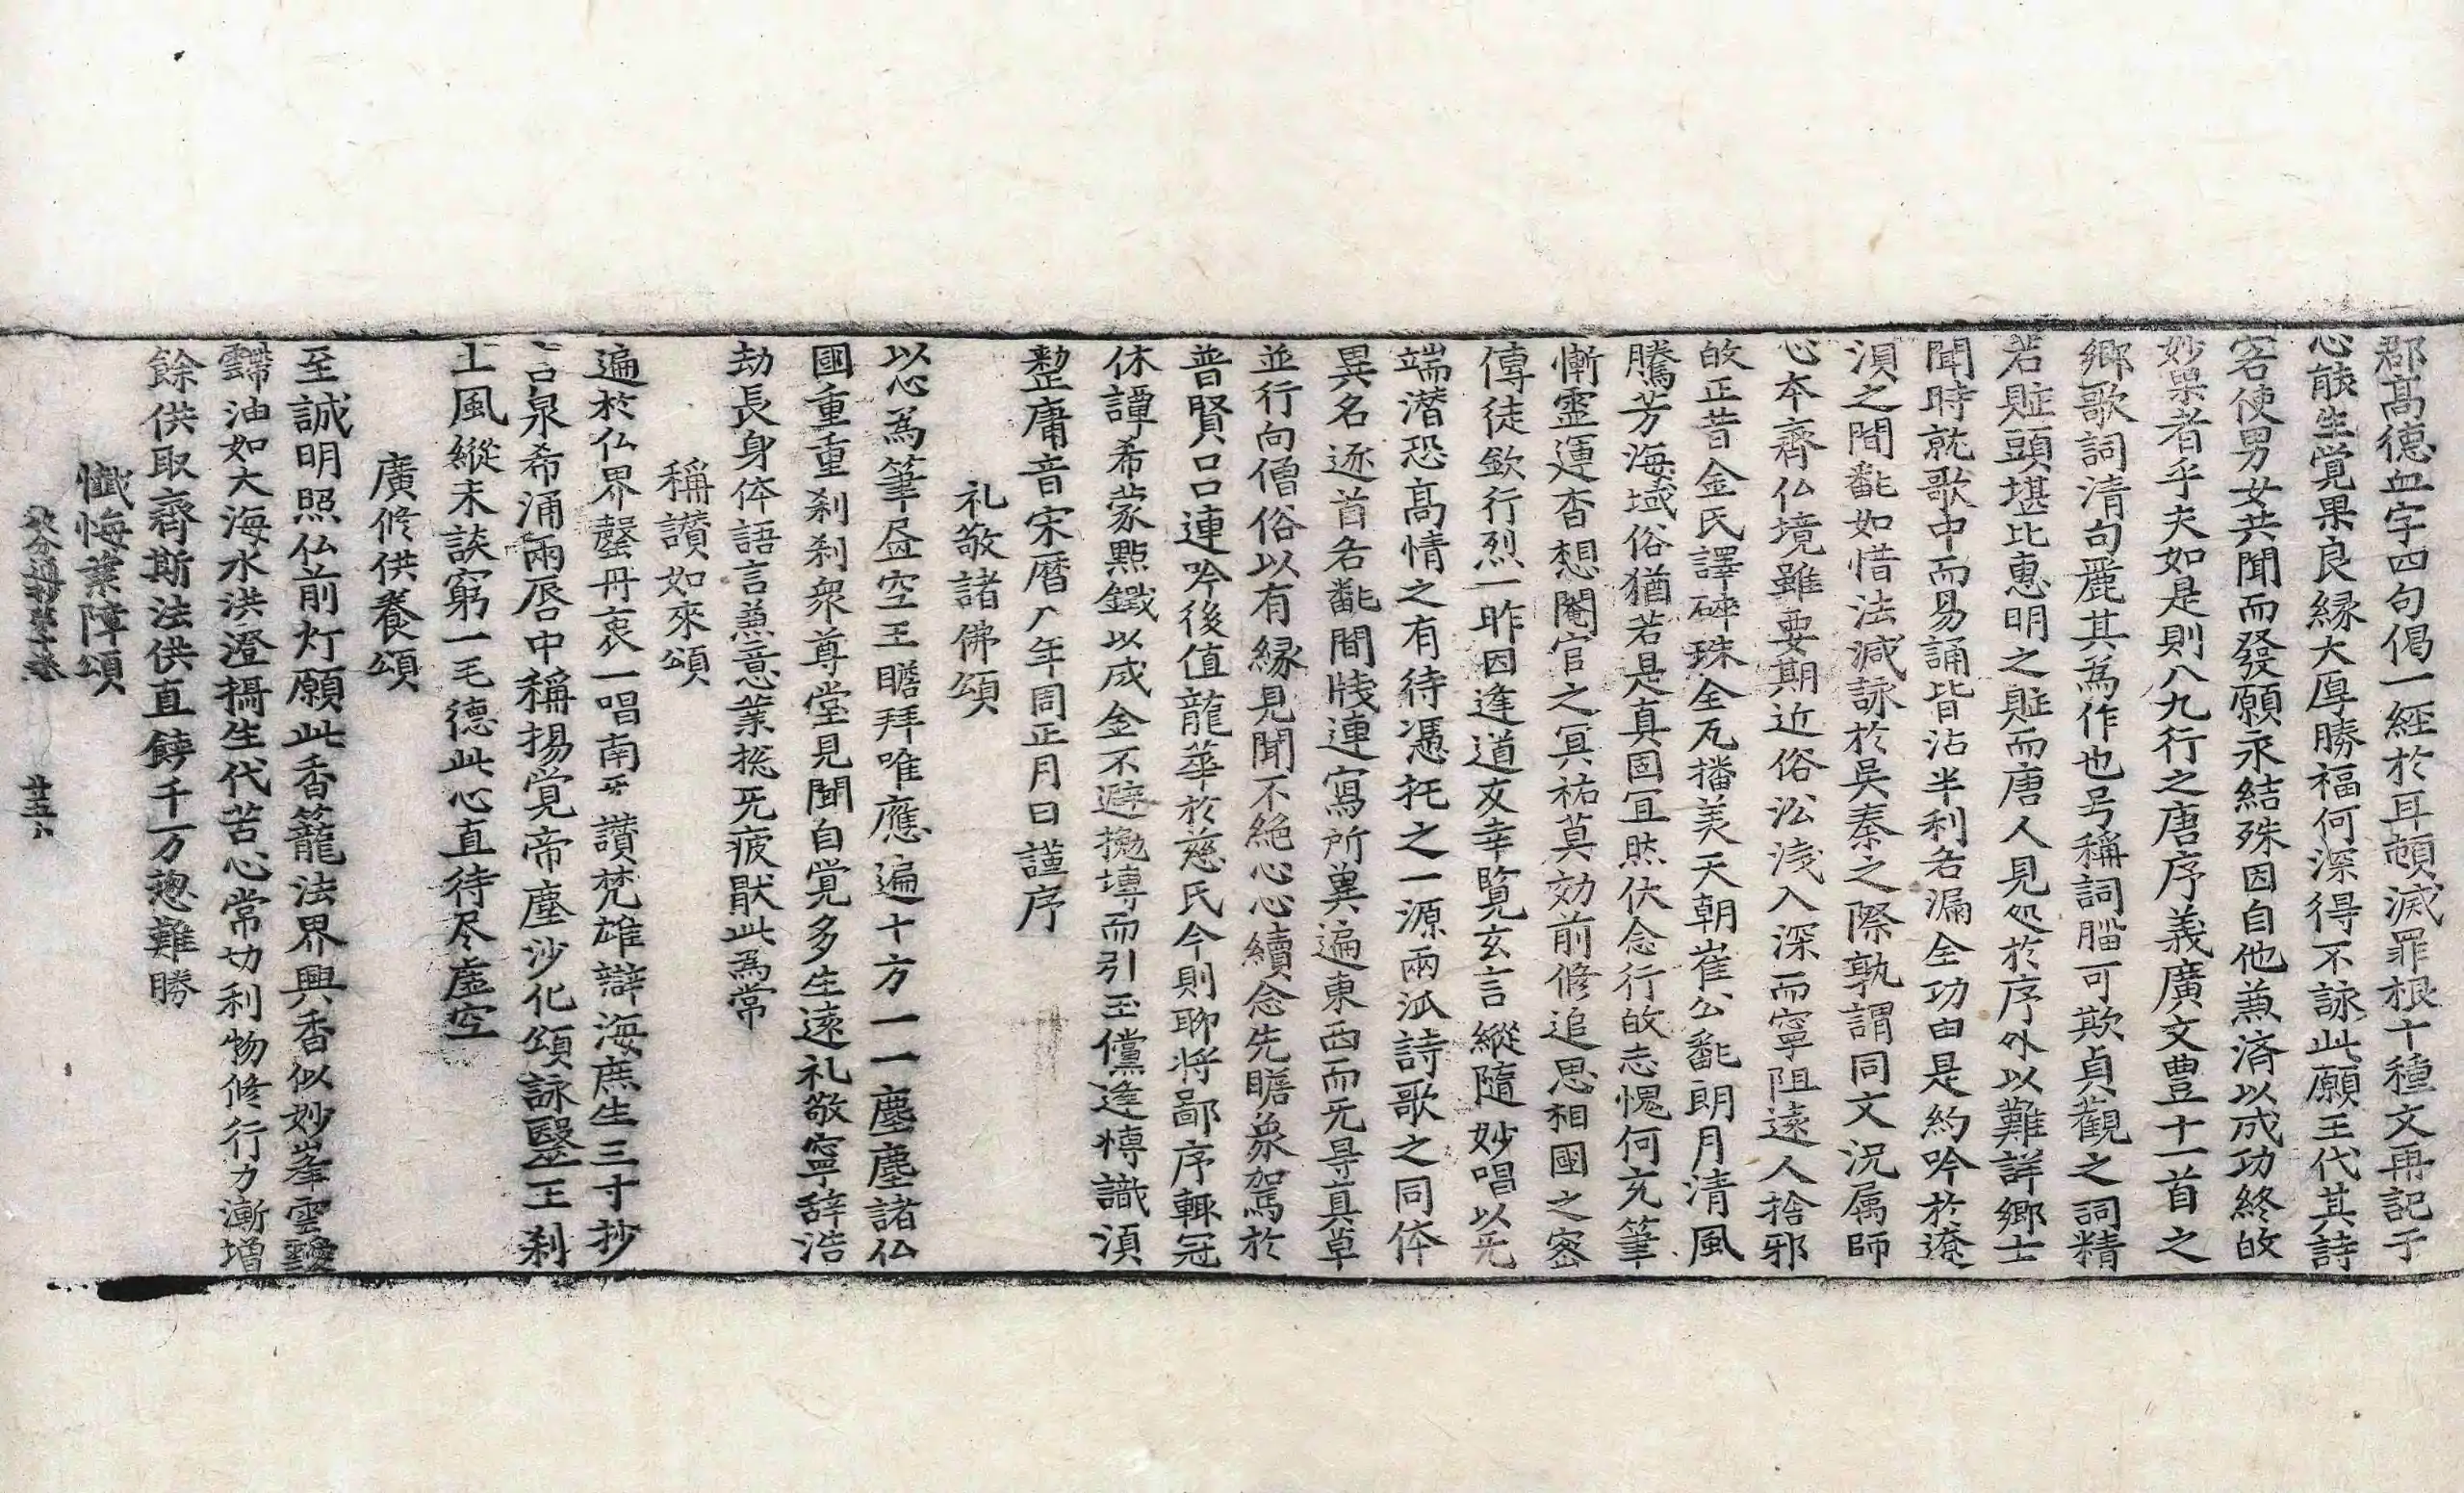 郡高德血字四句偈一經於耳頓滅罪根十種文再記于
心能生覚果良緣大厚勝福何深得不詠此願王代其詩
客使男女共聞而發願永結殊因自他兼済以成功終故
妙果者乎夫如是則八九行之唐序義廣文豊十一首之
鄉歌詞清句麗其為作也号稱詞腦可欺貞觀之詞精
若賍頭堪比惠明之賍而唐人見処於序外以難詳鄉士
聞時就歌中而易誦皆沾半利各漏全功由是約吟於遼
浿之間飜如惜法減詠於吳秦之際孰謂同文況属師
心本齊仏境雖要期近俗沿淺入深而寧阻遠人捨邪
故正昔金氏譯碎珠全瓦播美天朝崔公飜朗月清風
騰芳海域俗猶若是真固冝然伏念行故志愧何充筆
慚霊運杳想閹官之冥祐莫効前修追思相國之密
傳徒欽行烈一昨因逢道友幸覧玄言縱隨妙唱以无
端潜恐高情之有待憑托之一源兩派詩歌之同体
異名逐首各飜間牋連寫所冀遍東西而无导真草
並行向僧俗以有緣見聞不絶心心續念先瞻象駕於
普賢口口連吟後值龍華於慈氏今則聊将鄙序輙冠
休譚希蒙點鐵以成金不避拋塼而引玉儻逢博識湏
整庸音宋曆八年周正月日謹序
礼敬諸佛頌
以心為筆𦘕空王瞻拜唯應遍十方一一塵塵諸仏
國重重刹刹衆尊堂見聞自覚多生遠礼敬寧辝浩
劫長身体語言兼意業揔无疲猒此為常
稱讃如來頌
遍於仏界罄丹衷一唱南无讃梵雄辯海庶生三寸抄
言泉希涌兩唇中稱揚覚帝塵沙化頌詠毉王刹
土風縱未談窮一毛德此心直待尽虛空
廣修供養頌
至誠明照仏前灯願此香籠法界興香似妙峯雲靉
䨴油如大海水洪澄攝生代苦心常切利物修行力漸增
餘供取齊斯法供直饒千万惣難勝
懺悔業障頌
廿五卜